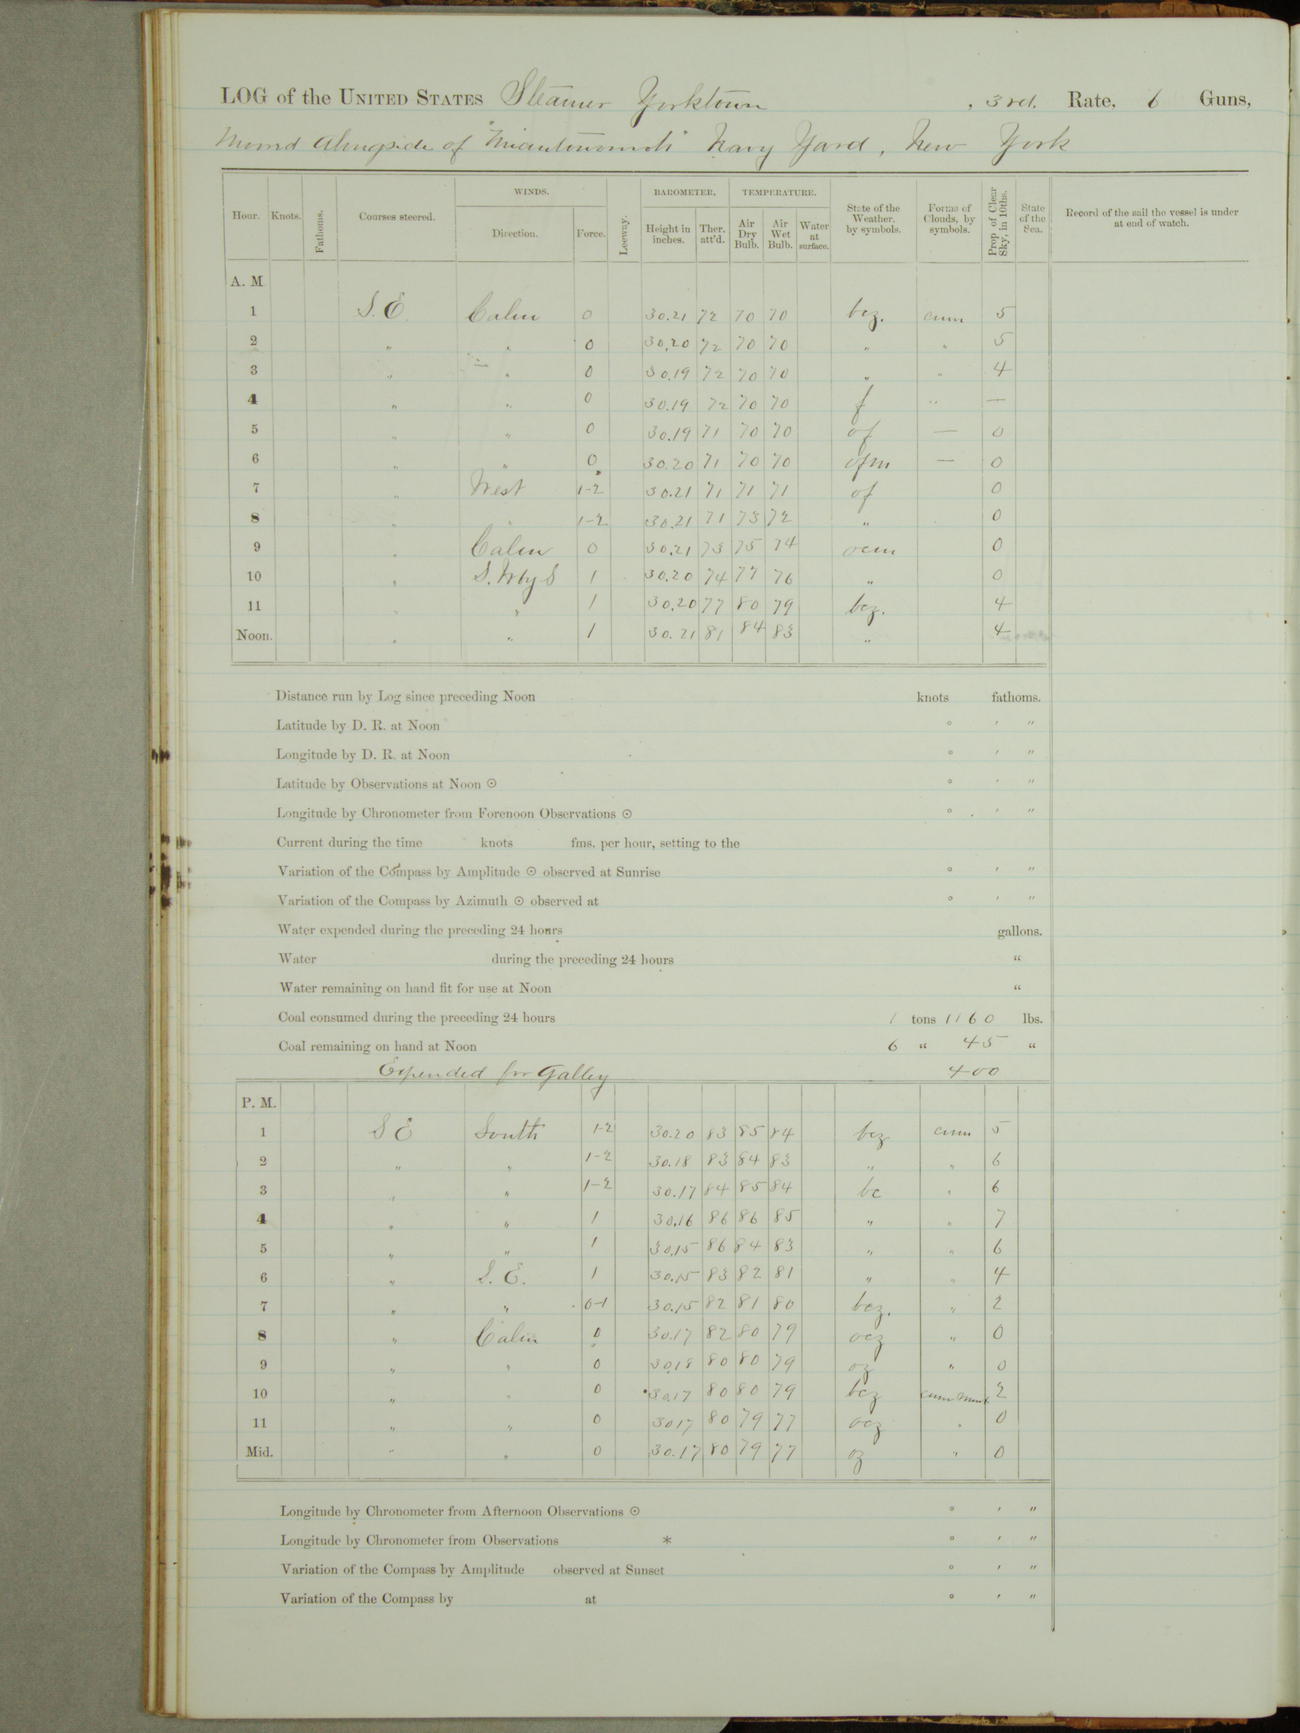 LOG of the UNITED STATES Steamer Yorktown , 3rd. Rate, 6 Guns,
Moored Alongside of "Miantonomoh" Navy Yard, New York
Hour. Knots. Fathoms. Courses steered. WINDS. Direction. Force. Leeway. BAROMETER. Height in inches. Ther. att'd. TEMPERATURE. Air Dry Bulb. Air Wet Bulb. Water at surface. State of the Weather. by symbols. Forms of Clouds, by symbols. Prop. of Clear Sky, in 10ths. State of the Sea. Record of the sail the vessel is under at end of watch.
A. M
1 S.E. Calm 0 30.21 72 70 70 bcz. cum 5
2 " " 0 30.20 72 70 70 " " 5
3 " " 0 30.19 72 70 70 " " 4
4 " " 0 30.19 72 70 70 f " —
5 " " 0 30.19 71 70 70 of — 0
6 " " 0 30.20 71 70 70 ofm — 0
7 " West 1-2 30.21 71 71 71 of 0
8 " " 1-2 30.21 71 73 72 " 0
9 " Calm 0 30.21 73 75 74 ocm 0
10 " S.W by S 1 30.20 74 77 76 " 0
11 " " 1 30.20 77 80 79 bcz. 4
Noon. " " 1 30.21 81 84 83 " 4
Distance run by Log since preceding Noon knots fathoms.
Latitude by D. R. at Noon ° ′ ″
Longitude by D. R. at Noon ° ′ ″
Latitude by Observations at Noon ☉ ° ′ ″
Longitude by Chronometer from Forenoon Observations ☉ ° ′ ″
Current during the time knots fms. per hour, setting to the
Variation of the Compass by Amplitude ☉ observed at Sunrise ° ′ ″
Variation of the Compass by Azimuth ☉ observed at ° ′ ″
Water expended during the preceding 24 hours gallons.
Water during the preceding 24 hours “
Water remaining on hand fit for use at Noon “
Coal consumed during the preceding 24 hours 1 tons 1160 lbs.
Coal remaining on hand at Noon 6 “ 45 “
Expended for Galley 400
P. M.
1 S E South 1-2 30.20 83 85 84 bcz cum 5
2 " " 1-2 30.18 83 84 83 " " 6
3 " " 1-2 30.17 84 85 84 bc " 6
4 " " 1 30.16 86 86 85 " " 7
5 " " 1 30.15 86 84 83 " " 6
6 " S.E. 1 30.15 83 82 81 " " 4
7 " " 0-1 30.15 82 81 80 bcz. " 2
8 " Calm 0 30.17 82 80 79 ocz " 0
9 " " 0 30.18 80 80 79 oz " 0
10 " " 0 30.17 80 80 79 bcz cum nimb 2
11 " " 0 30.17 80 79 77 ocz " 0
Mid. " " 0 30.17 80 79 77 oz " 0
Longitude by Chronometer from Afternoon Observations ☉ ° ′ ″
Longitude by Chronometer from Observations * ° ′ ″
Variation of the Compass by Amplitude observed at Sunset ° ′ ″
Variation of the Compass by at ° ′ ″